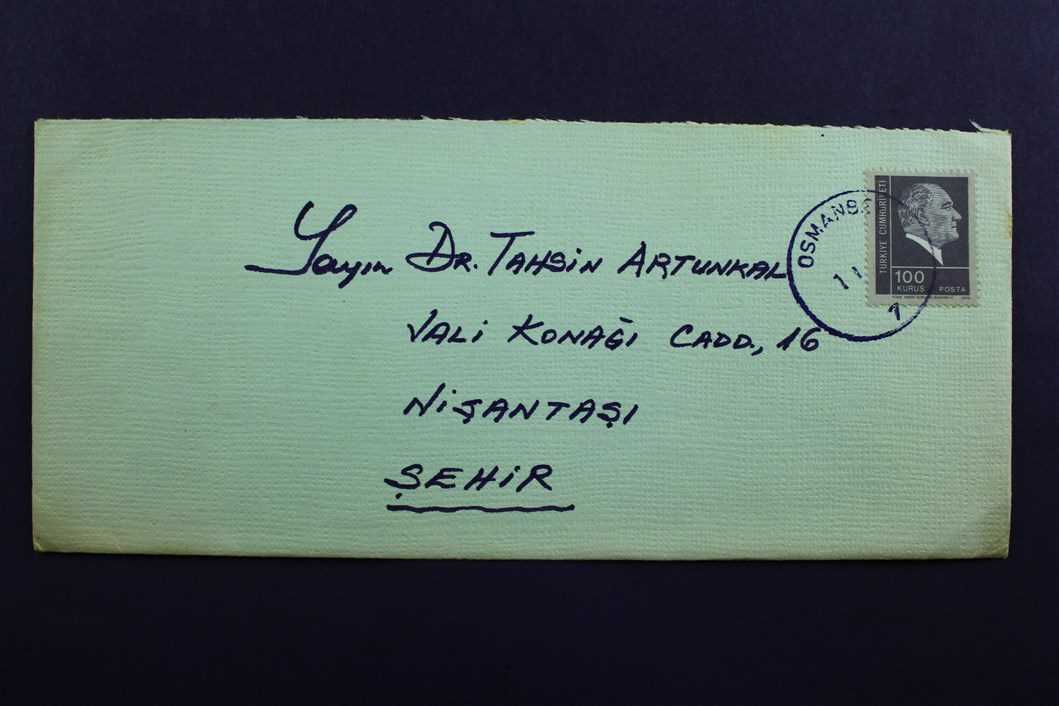 Sayın Dr. TAHSİN ARTUNKAL
VALİ KONAĞI CADD., 16
NİŞANTAŞI
ŞEHİR
TÜRKİYE CUMHURİYETİ
100
KURUŞ POSTA